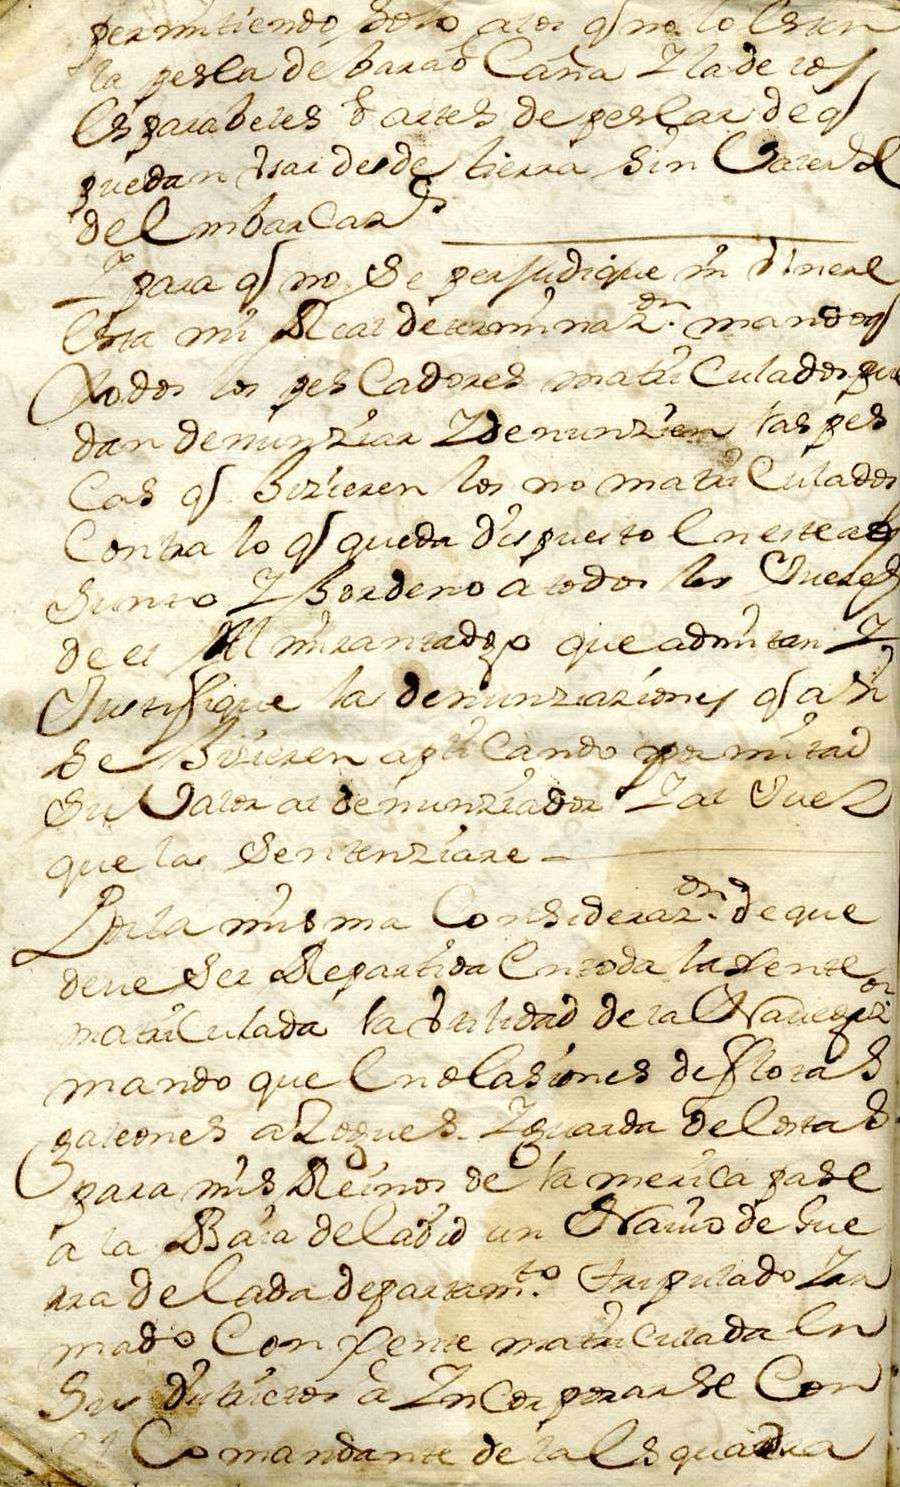 permitiendo solo a los q no lo esten
la pesca de barao Caña Y la de los
Esparabeles u artes de pescar de q
puedan usar desde tierra sin Valerse
de Embarcaon
Y para q no se perjudique ni dinere
Esta mi Real determinazon. mando q
todos los pesCadores matriCulados pue
dan denunziar Y denunzien las pes
Cas q hizieren los no matriCulados
Contra lo q queda dispuesto En este a
sunto Y hordeno a todos los Jueses
de el Almirantadgo que admitan Y
Justifique las denunziaziones q asi
se hizieren apliCando por mitad
su Valor al denunziador Y al Juez
que las Sentenziare
Por la misma Considerazon. de que
deve ser Repartida En toda la Jente
matriCulada la utilidad de la Navegazon
mando que En oCasiones de flotas
galeones aZogues Y guarda de Costas
para mis Reinos de la merica pase
a la Baia de Cadid un Navio de Gue
rra de Cada departamto. tripulado Y ar
mado Con Jente matriculada En
Sus distritos a YnCorporarse Con
Comandante de la Esquadra